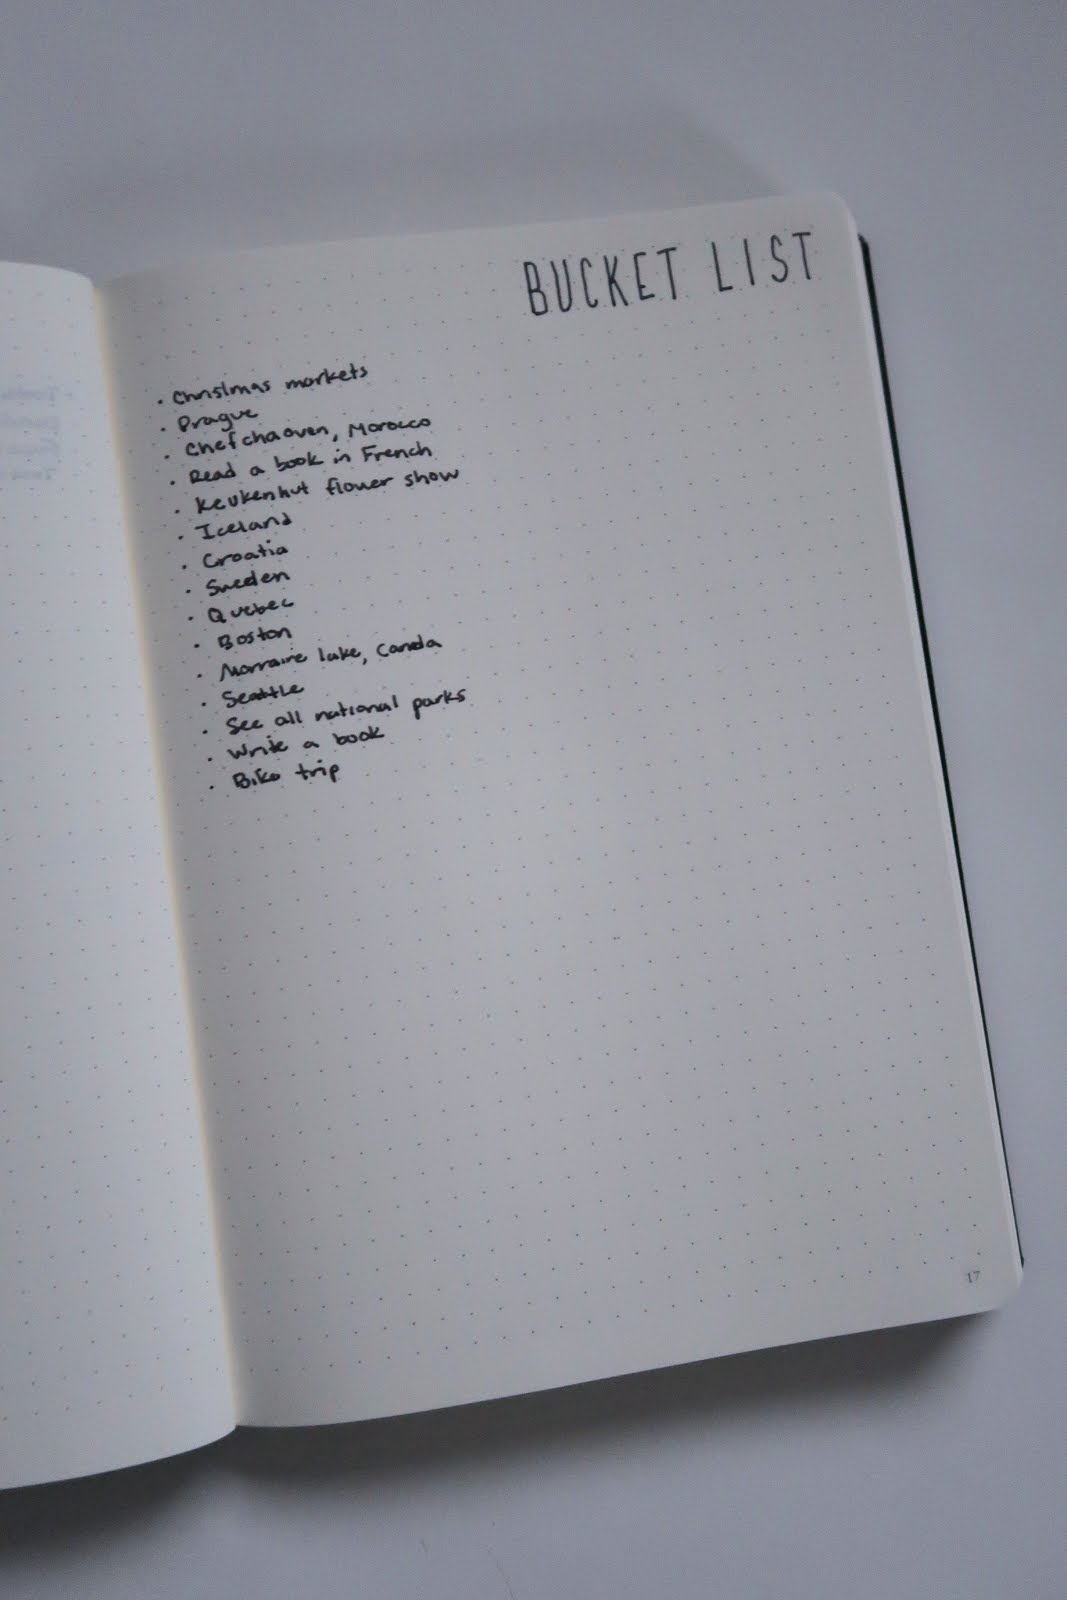 BUCKET LIST
· Christmas markets
· Prague
· Chefchaoven, Morocco
· Read a book in French
· Keukenhut flower show
· Iceland
· Croatia
· Sweden
· Quebec
· Boston
· Morraine lake, Canda
· Seattle
· See all national parks
· Write a book
· Bike trip
17